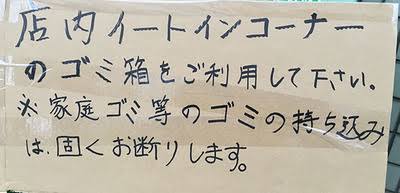 店内イートインコーナー
のゴミ箱をご利用して下さい。
※家庭ゴミ等のゴミの持ち込み
は、固くお断りします。